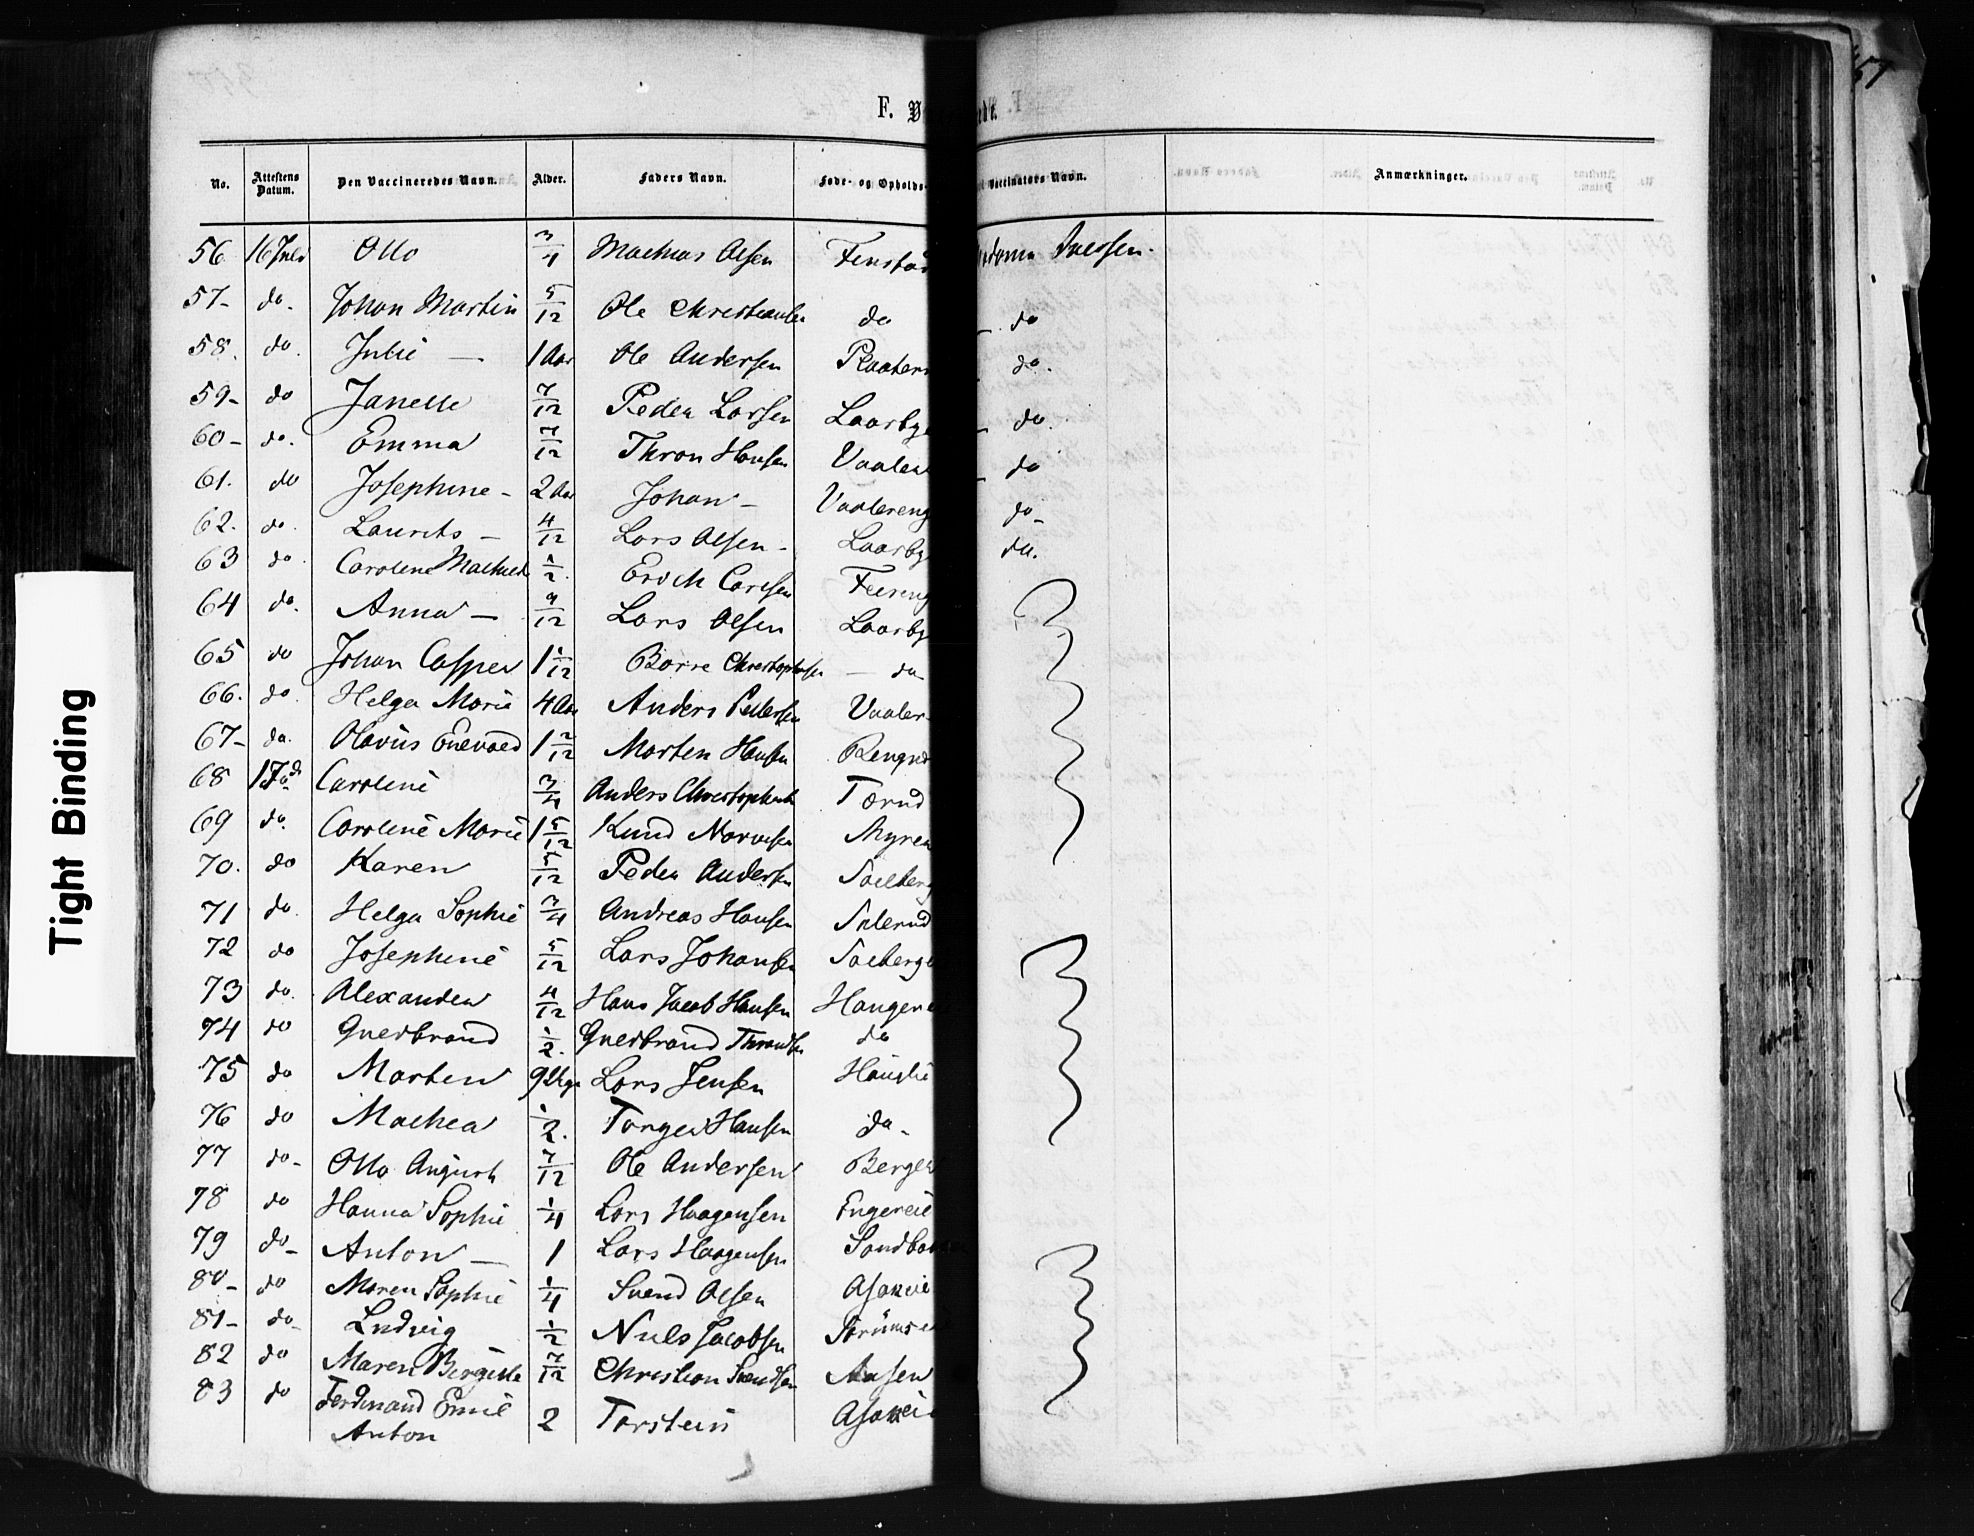 57
F. V edе.
No. Attestens Datum. Den Vaccineredes Navn. Alder. Faders Navn. Føde- og Opholds- Vaccinators Navn. Anmærkninger.
56 16 Juli Otto 3/4 Mathias Olsen Fenstad Madame
57- do. Johan Martin 5/12 Ole Christiansen do do
58. do. Julie — 1 Aar Ole Andersen do.
59- do Janette 7/12 Peder Larsen Laarbye do.
60- do. Emma 7/12 Thron Hansen Vaalen do
61. do Josephine - 2 Aar Johan - Vaalereng do-
62. do. Laurits — 4/12 Lars Olsen - Laarby do.
63 do. Caroline Mathilde 1/2. Erich Carlsen
64 do. Anna — 9/12 Lars Olsen Laarby
65 do Johan Casper 1 1/12 Børre Christophersen — do
66. do. Helga Marie 4 Aar Anders Pettersen Vaaler
67- do. Olavus Enevold 1 2/12 Morten Hansen
68 17 d. Caroline 3/4 Anders Christophersen Tærud
69 do. Caroline Marie 1 5/12 Knud Myren
70. do Karen 5/12 Peder Andersen
71 do. Helga Sophie 3/4 Andreas Hansen
72 do Josephine 5/12 Lars Johansen
73 do. Alexander 4/12 Hans Jacob Hansen
74 do Guldbrand 1/2. Guldbrand Throndsen do
75 do Morten 9 Uger Lars Jensen
76 do Mathea 1/2. Torger Hansen do-
77 do- Otto August 7/12 Ole Andersen Bergen
78 do Hanna Sophie 1/4 Lars Haagensen Engereie
79 do- Anton — 1 Lars Haagensen
80- do Maren Sophie 1/4 Svend Olsen Asakeie
81- do- Ludvig 1/2 Niels Jacobsen
82 do Maren Birgitte 7/12 Christian Svendsen Aasen
83 do Ferdinand Emil 2 Torstein Asakeie
Anton
Tight Binding